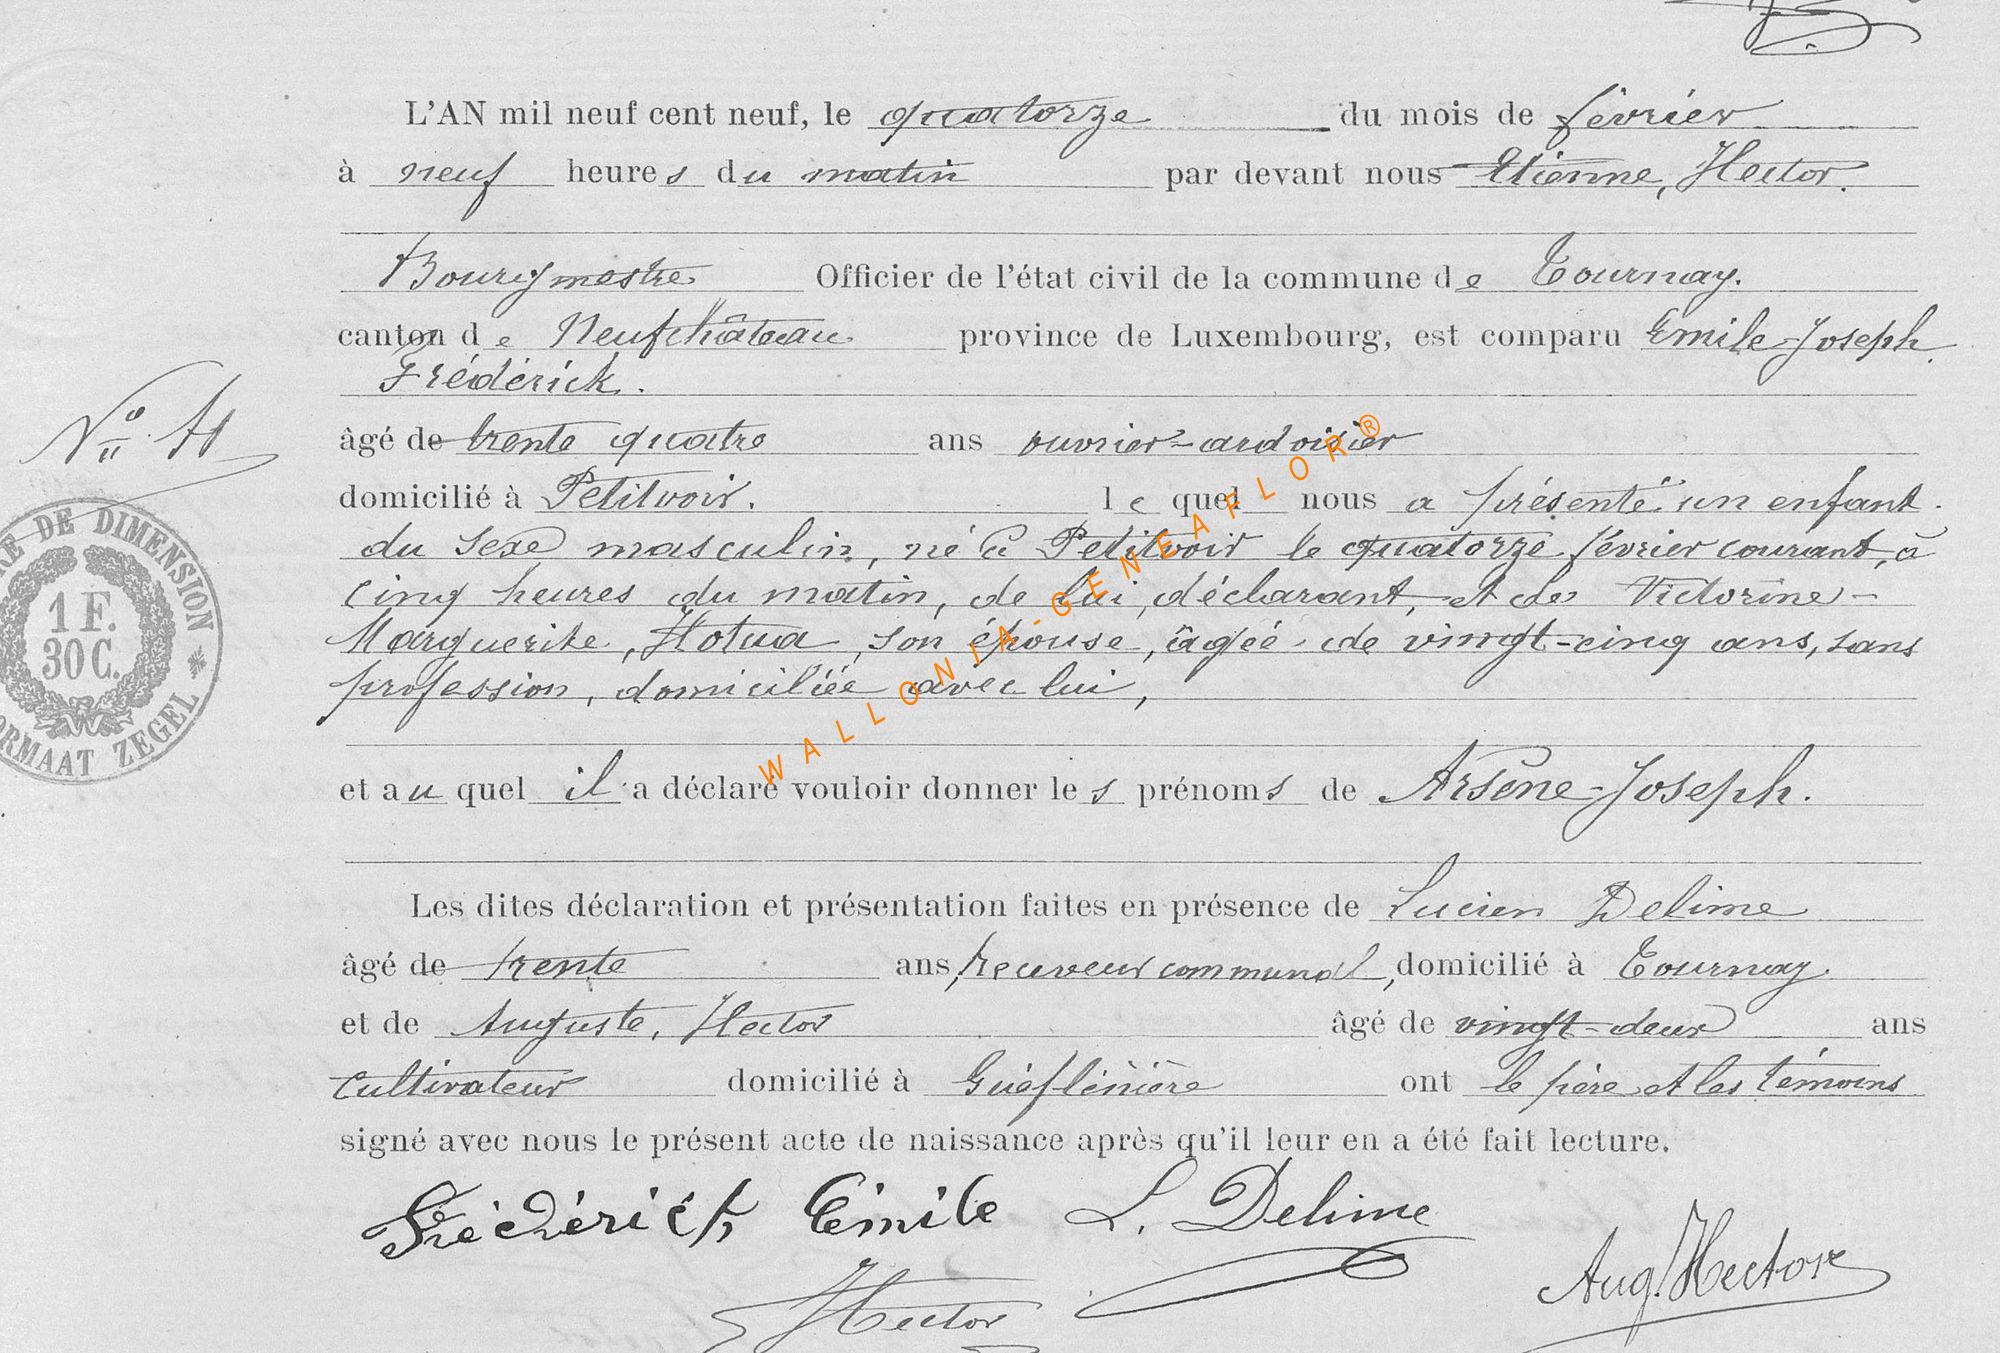 L'AN mil neuf cent neuf, le quatorze du mois de février
à neuf heures du matin par devant nous Etienne, Hector.
Bourgmestre Officier de l'état civil de la commune de Tournay.
canton de Neufchâteau province de Luxembourg, est comparu Emile-Joseph
Frédérick.
Nº
âgé de trente quatre ans ouvrier-ardoisier
domicilié à Petitvoir. lequel nous a présenté un enfant.
du sexe masculin, né à Petitvoir le quatorze février courant, à
cinq heures du matin, de lui, déclarant, et de Victorine-
Marguerite, Hotua, son épouse, âgée de vingt-cinq ans, sans
profession, domiciliée avec lui,
et auquel il a déclaré vouloir donner les prénoms de Arsène-Joseph.
Les dites déclaration et présentation faites en présence de Lucien Delime
âgé de trente ans, receveur communal, domicilié à Tournay.
et de Auguste, Hector âgé de vingt-deux ans
cultivateur domicilié à ont le père et les témoins
signé avec nous le présent acte de naissance après qu'il leur en a été fait lecture.
Frédérick Emile L. Delime
Hector Aug. Hector
DE DIMENSION
1 F.
30 C.
FORMAAT ZEGEL
WALLONIA-GENEAFLOR®